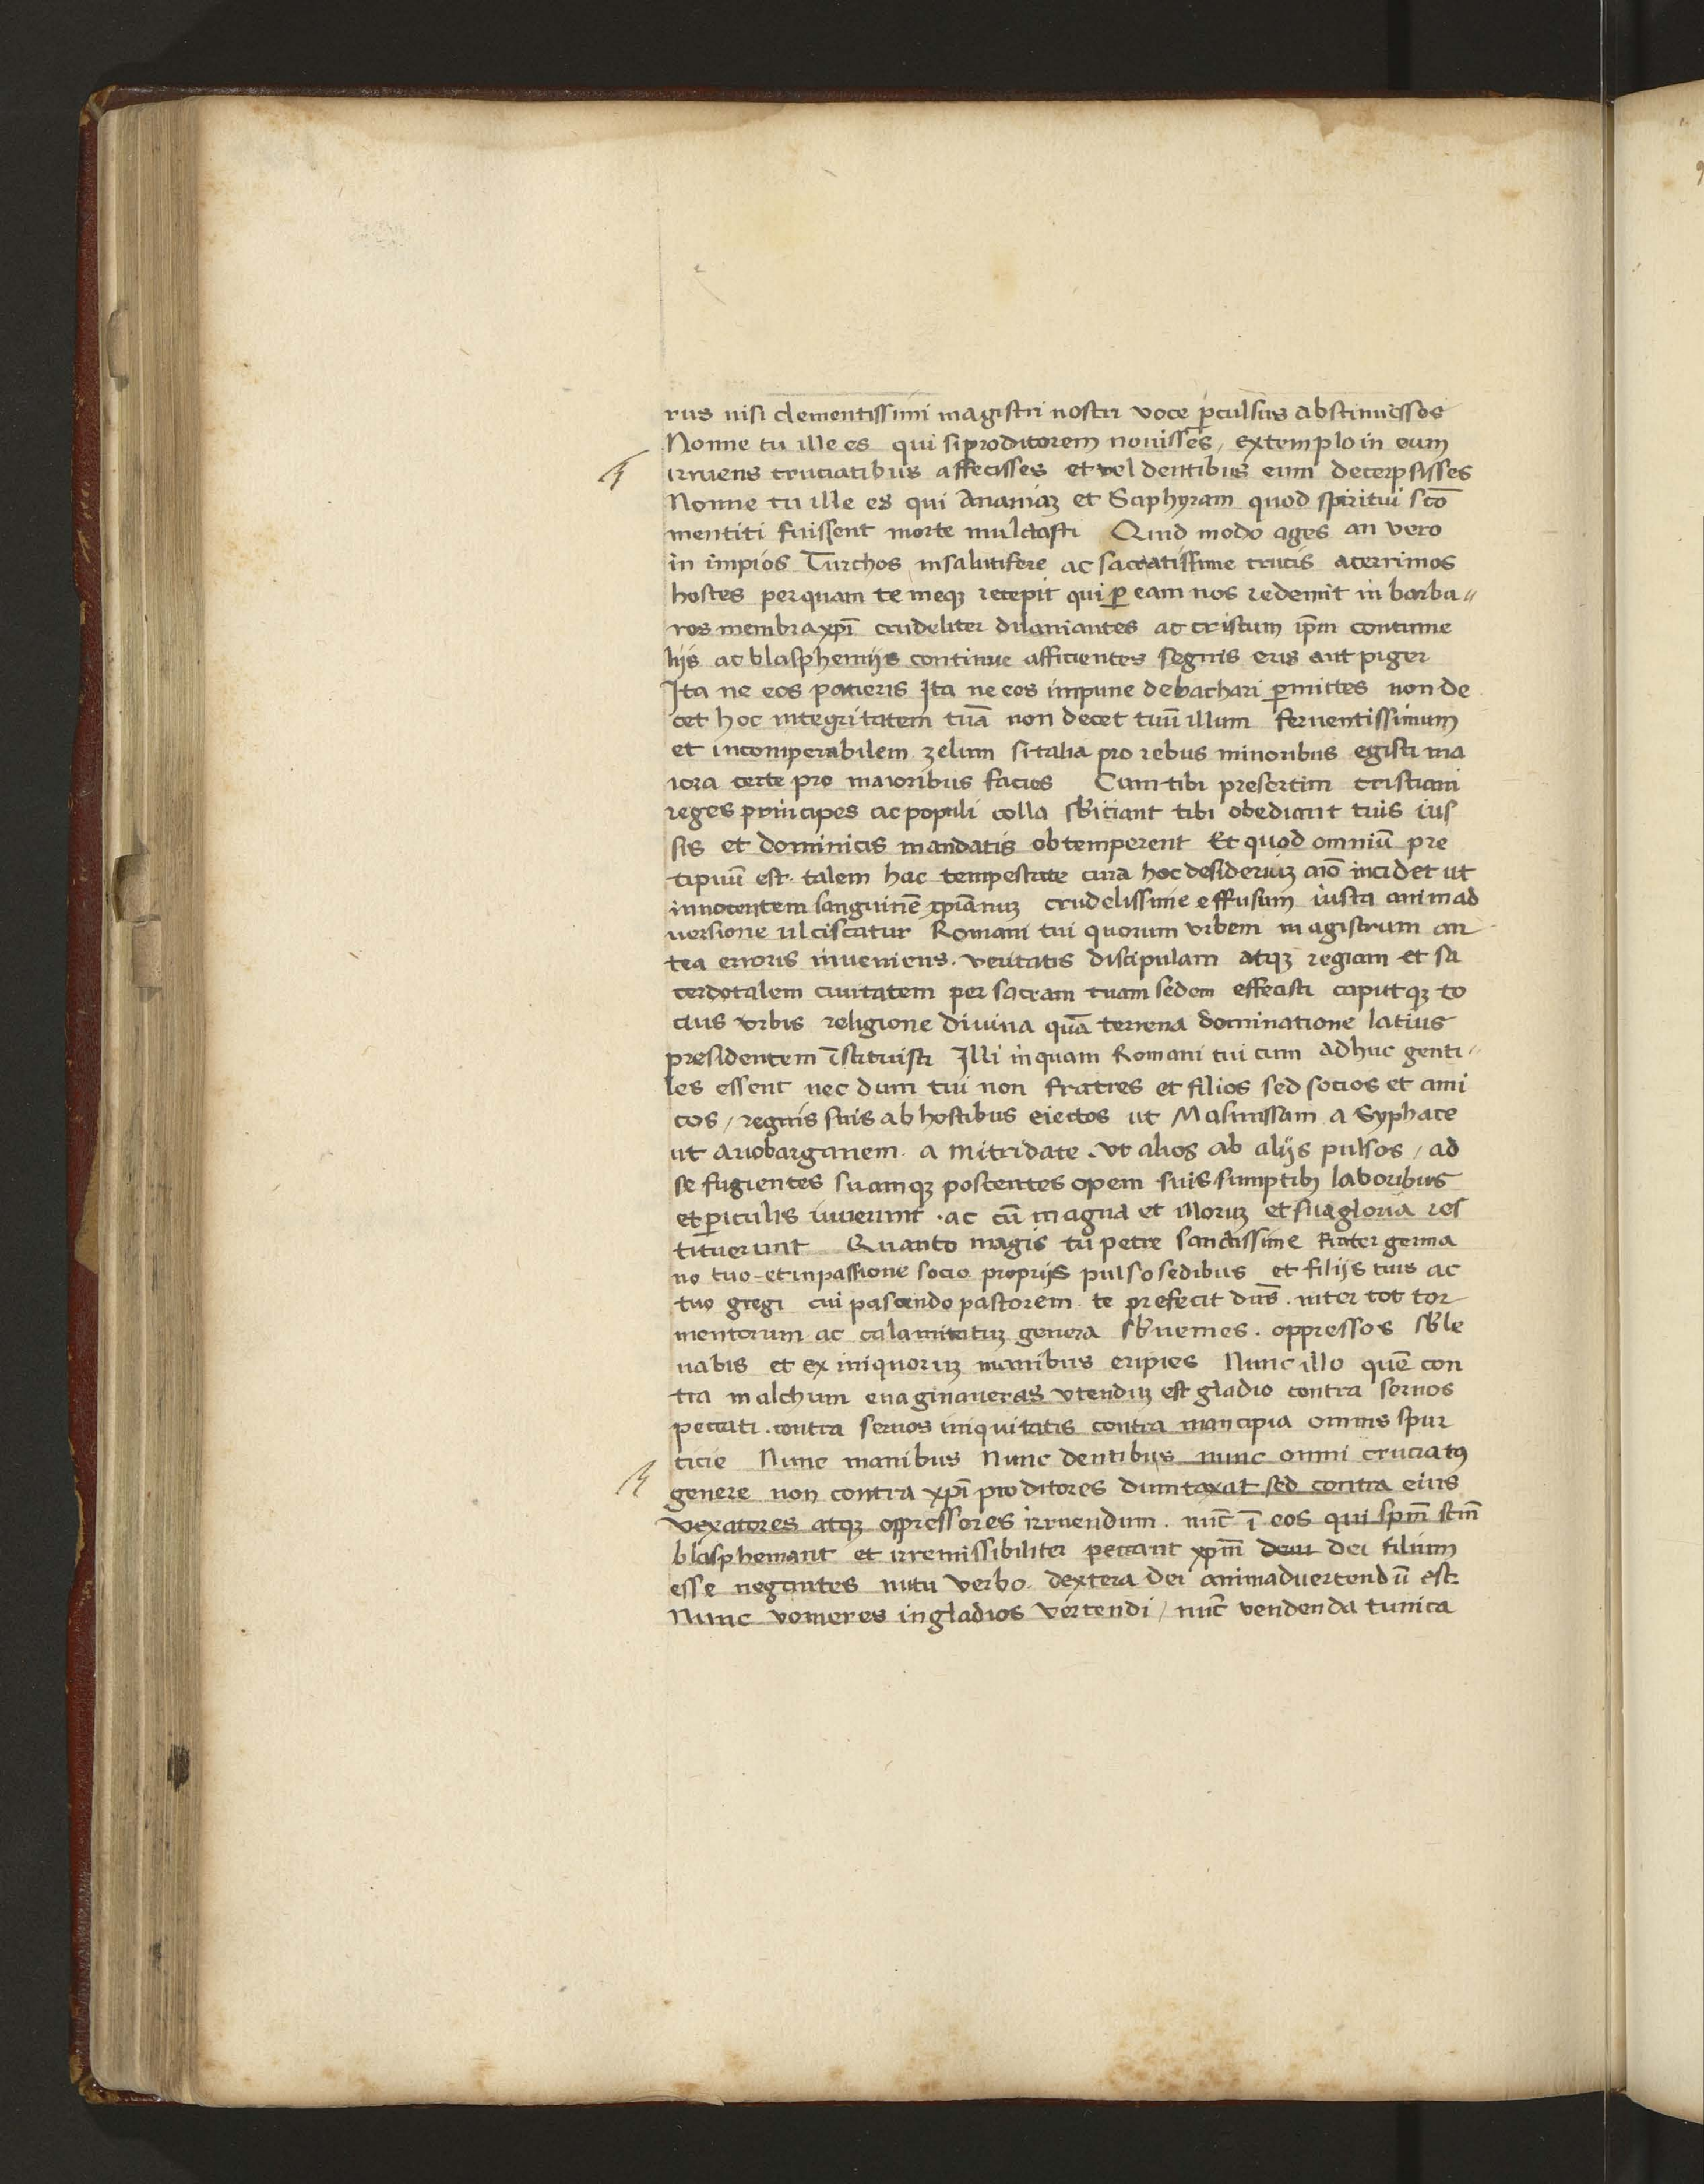 rus nisi clementissimi magistri nostri voce ꝑculsus abstinuisses
Nonne tu ille es qui si proditorem novisses, extemplo in eum
irruens cruciatibus affecisses et vel dentibus eum decerpsisses
Nonne tu ille es qui Ananiaꝫ et Saphyram quod spiritui sc̄o
mentiti fuissent morte mulctasti Quid modo ages an vero
in impios Turchos in salutifere ac sacratissime crucis acerrimos
hostes per quam te meqꝫ recepit qui ꝑ eam nos redemit in barba〃
ros membra xp̄i crudeliter dilaniantes ac cristum ip̄m contume
lijs ac blasphemijs continue afficientes segnis eris aut piger
Ita ne eos patieris Ita ne eos impune debachari ꝑmittes non de
cet hoc integritatem tuā non decet tuū illum ferventissimum
et incomperabilem zelum si talia pro rebus minoribus egisti ma
iora certe pro maioribus facies Cum tibi presertim cristiani
reges principes ac populi colla sb̄iciant tibi obediant tuis ius
sis et dominicis mandatis obtemperent Et quod omniū pre
cipuū est talem hac tempestate cura hoc desideriuꝫ aīo incidet ut
innocentem sanguinē xp̄ianuꝫ crudelissime effusum iusta animad
versione ulciscatur Romani tui quorum urbem magistrum an
tea erroris inveniens. veritatis discipulam atqꝫ regiam et sa
cerdotalem civitatem per sacram tuam sedem effecisti caputqꝫ to
cius vrbis religione divina quā terrena dominatione latius
presidentem īstituisti Illi inquam Romani tui cum adhuc genti〃
les essent nec dum tui non fratres et filios sed socios et ami
cos, regnis suis ab hostibus eiectos ut Masinissam a Syphace
ut Ariobarganem a Mitridate. ut alios ab alijs pulsos, ad
se fugientes suamqꝫ poscentes opem suis sumptibꝫ laboribus
et ꝑiculis iuverunt. ac cū magna et illoruꝫ et sua gloria res
tituerunt Quanto magis tu petre sanctissime frater germa
no tuo et in passione socio proprijs pulso sedibus et filijs tuis ac
tuo gregi cui pascendo pastorem te prefecit dn̄s. inter tot tor
mentorum ac calamitatuꝫ genera sb̄venies. oppressos sb̄le
vabis et ex iniquoruꝫ manibus eripies Nunc illo quē con
tra malchum evaginaveras utenduꝫ est gladio contra servos
peccati. contra servos iniquitatis contra mancipia omnis spur
ticie Nunc manibus Nunc dentibus nunc omni cruciatꝰ
genere non contra xp̄i proditores dumtaxat sed contra eius
vexatores atqꝫ oppressores irruendum. nūc ī eos qui spm̄ scm̄
blasphemant et irremissibiliter peccant xpm̄ deui dei filium
esse negantes nutu verbo. dextera dei animadvertendū est
Nunc vomeres in gladios vertendi, nūc vendenda tunica